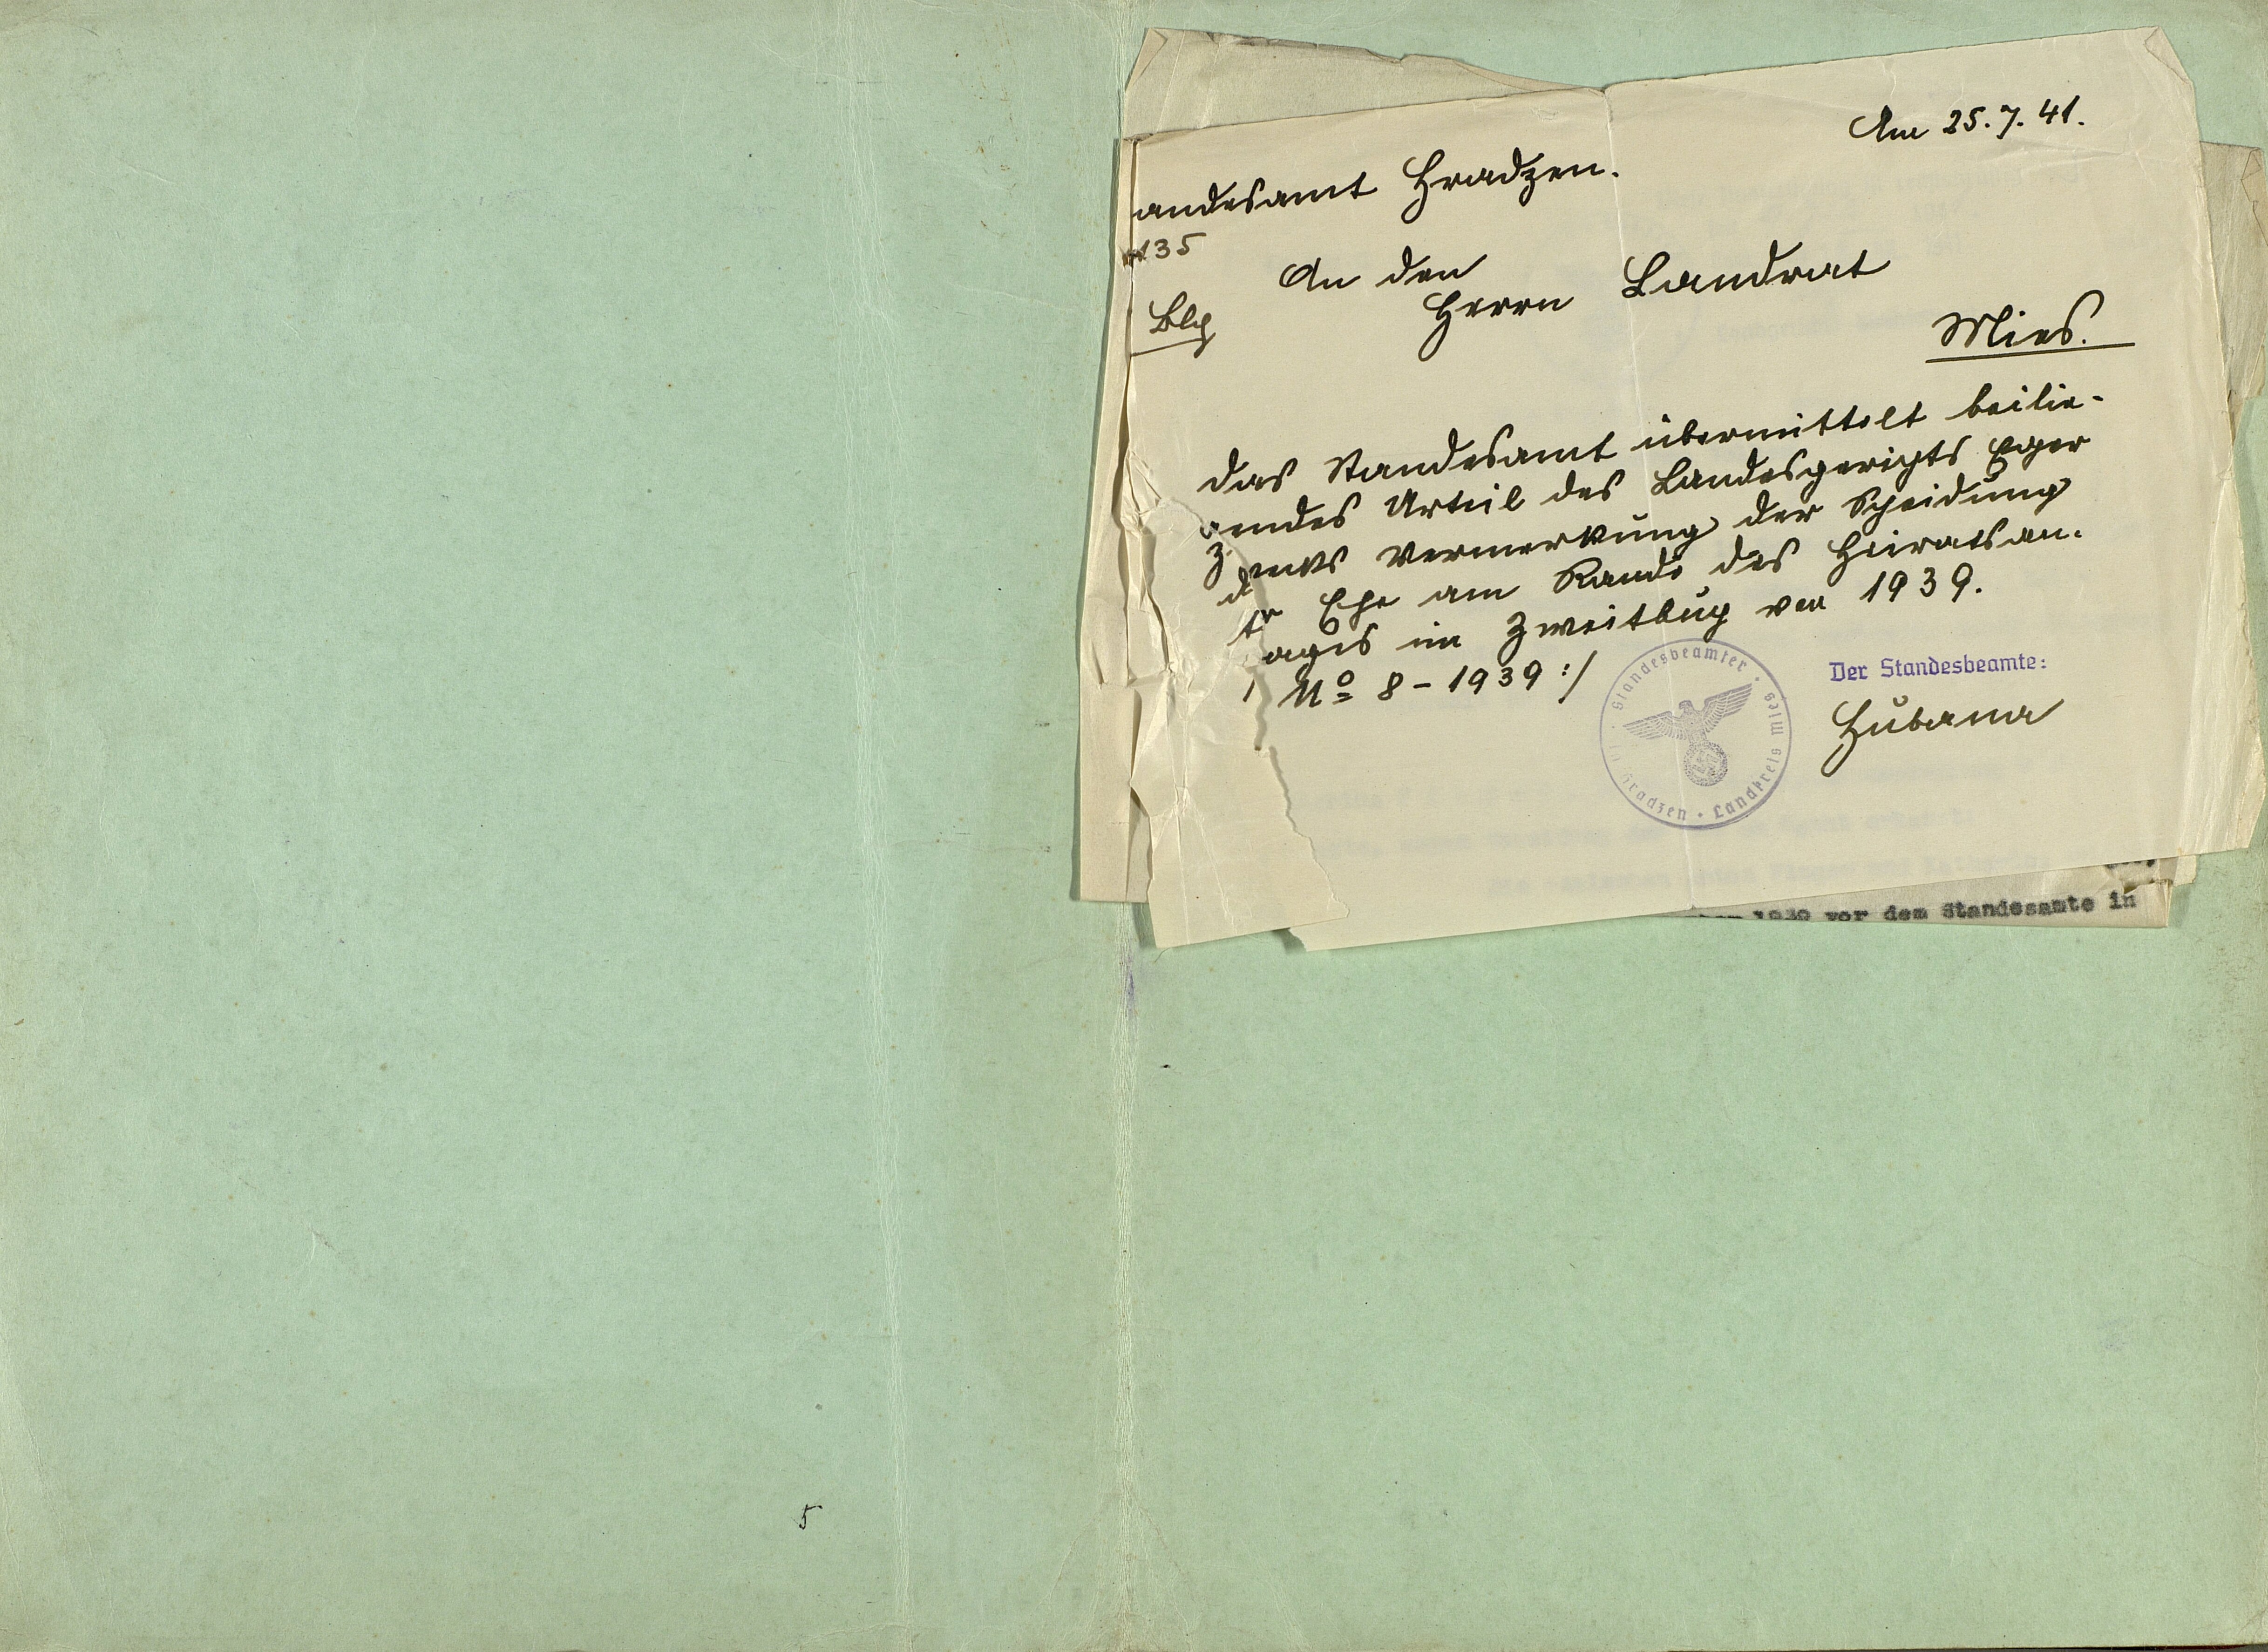 Am 25.7.41.
andesamt Hradzen.
135
An den
Herrn Landrat
Blg
Mies.
Das Standesamt übermittelt beilie-
gendes Urteil des Landesgerichts Eger
zwecks Vermerkung der Scheidung
der Ehe am Rande des Heiratsan-
trages im Zweitbuch von 1939.
/ No 8 - 1939 :/
Der Standesbeamte:
Standesbeamter · Hradzen · Landkreis Mies
1939 vor dem Standesamte in
5